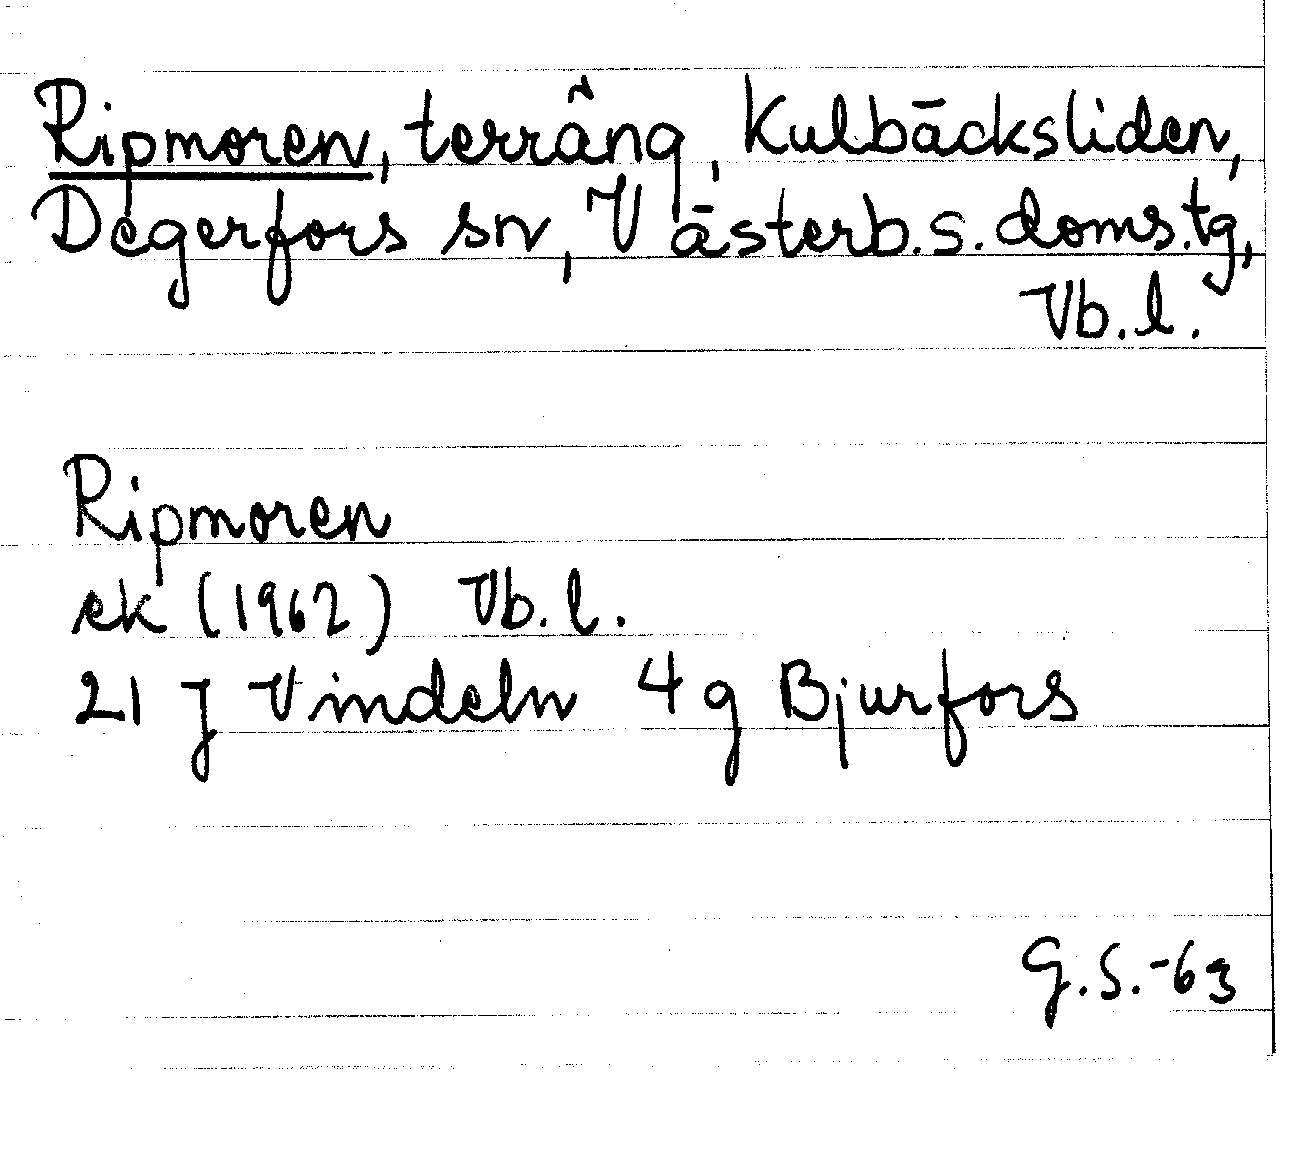 Ripmoren, terräng, Kulbäcksliden,
Degerfors sn, Västerb.s.doms.tg,
Vb.l.
Ripmoren
ek (1962) Vb.l.
21 J Vindeln 4g Bjurfors
G.S.-63